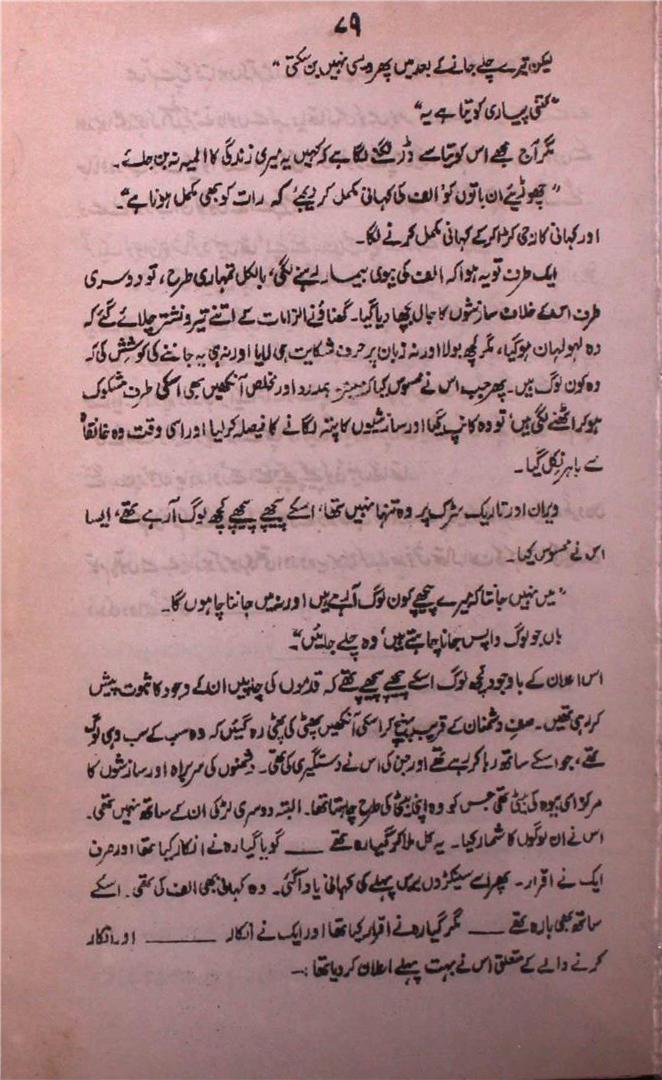 ۷۹
لیکن تیرے چلے جانے کے بعد میں پھر ویسی نہیں بن سکتی "
"کتنی پیاری کویتا ہے یہ"
مگر آج مجھے اس کویتا سے ڈر لگنے لگا ہے کہ کہیں یہ میری زندگی کا المیہ نہ بن جائے۔
"چھوڑیئے ان باتوں کو' الف کی کہانی مکمل کر دیجئے' کہ رات کو بھی مکمل ہونا ہے"۔
اور کہانی کار جی کڑا کر کے کہانی مکمل کرنے لگا۔
ایک طرف تو یہ ہوا کہ الف کی بیوی بیمار رہنے لگی، بالکل تمہاری طرح، تو دوسری
طرف اس کے خلاف سازشوں کا جال بچھا دیا گیا۔ گھناؤنے الزامات کے اتنے تیر و نشتر چلائے گئے کہ
وہ لہولہان ہو گیا، مگر کچھ بولا اور نہ زبان پر حرف شکایت ہی لایا اور نہ ہی یہ جاننے کی کوشش کی کہ
وہ کون لوگ ہیں۔ پھر جب اس نے محسوس کیا کہ معتبر، ہمدرد اور مخلص آنکھیں بھی اسکی طرف مشکوک
ہو کر اٹھنے لگی ہیں' تو وہ کانپ گیا اور سازشیوں کا پتہ لگانے کا فیصلہ کر لیا اور اسی وقت وہ خانقاہ
سے باہر نکل گیا۔
ویران اور تاریک سڑک پر وہ تنہا نہیں تھا، اسکے پیچھے پیچھے کچھ لوگ آرہے تھے، ایسا
اس نے محسوس کیا۔
"میں نہیں جانتا کہ میرے پیچھے کون لوگ آرہے ہیں اور نہ میں جاننا چاہوں گا۔
ہاں جو لوگ واپس جانا چاہتے ہیں' وہ چلے جائیں"۔
اس اعلان کے باوجود کچھ لوگ اسکے پیچھے پیچھے تھے کہ قدموں کی چاپیں ان کے وجود کا ثبوت پیش
کر رہی تھیں۔ صف دشمنان کے قریب پہنچ کر اسکی آنکھیں پھٹی کی پھٹی رہ گئیں کہ وہ سب کے سب وہی لوگ
تھے، جو اسکے ساتھ رہا کر رہے تھے اور جن کی اس نے دستگیری کی تھی۔ دشمنوں کی سربراہ اور سازشوں کا
مرکز اسی بیوہ کی بیٹی تھی جس کو وہ اپنی بیٹی کی طرح چاہتا تھا۔ البتہ دوسری لڑکی ان کے ساتھ نہیں تھی۔
اس نے ان لوگوں کا شمار کیا۔ یہ کل ملا کر گیارہ تھے ــــــ گویا گیارہ نے انکار کیا تھا اور صرف
ایک نے اقرار۔ پھر اسے سینکڑوں برس پہلے کی کہانی یاد آگئی۔ وہ کہانی بھی الف کی تھی۔ اسکے
ساتھ بھی بارہ تھے ــــــ مگر گیارہ نے اقرار کیا تھا اور ایک نے انکار ــــــ اور انکار
کرنے والے کے متعلق اس نے بہت پہلے اعلان کر دیا تھا :۔